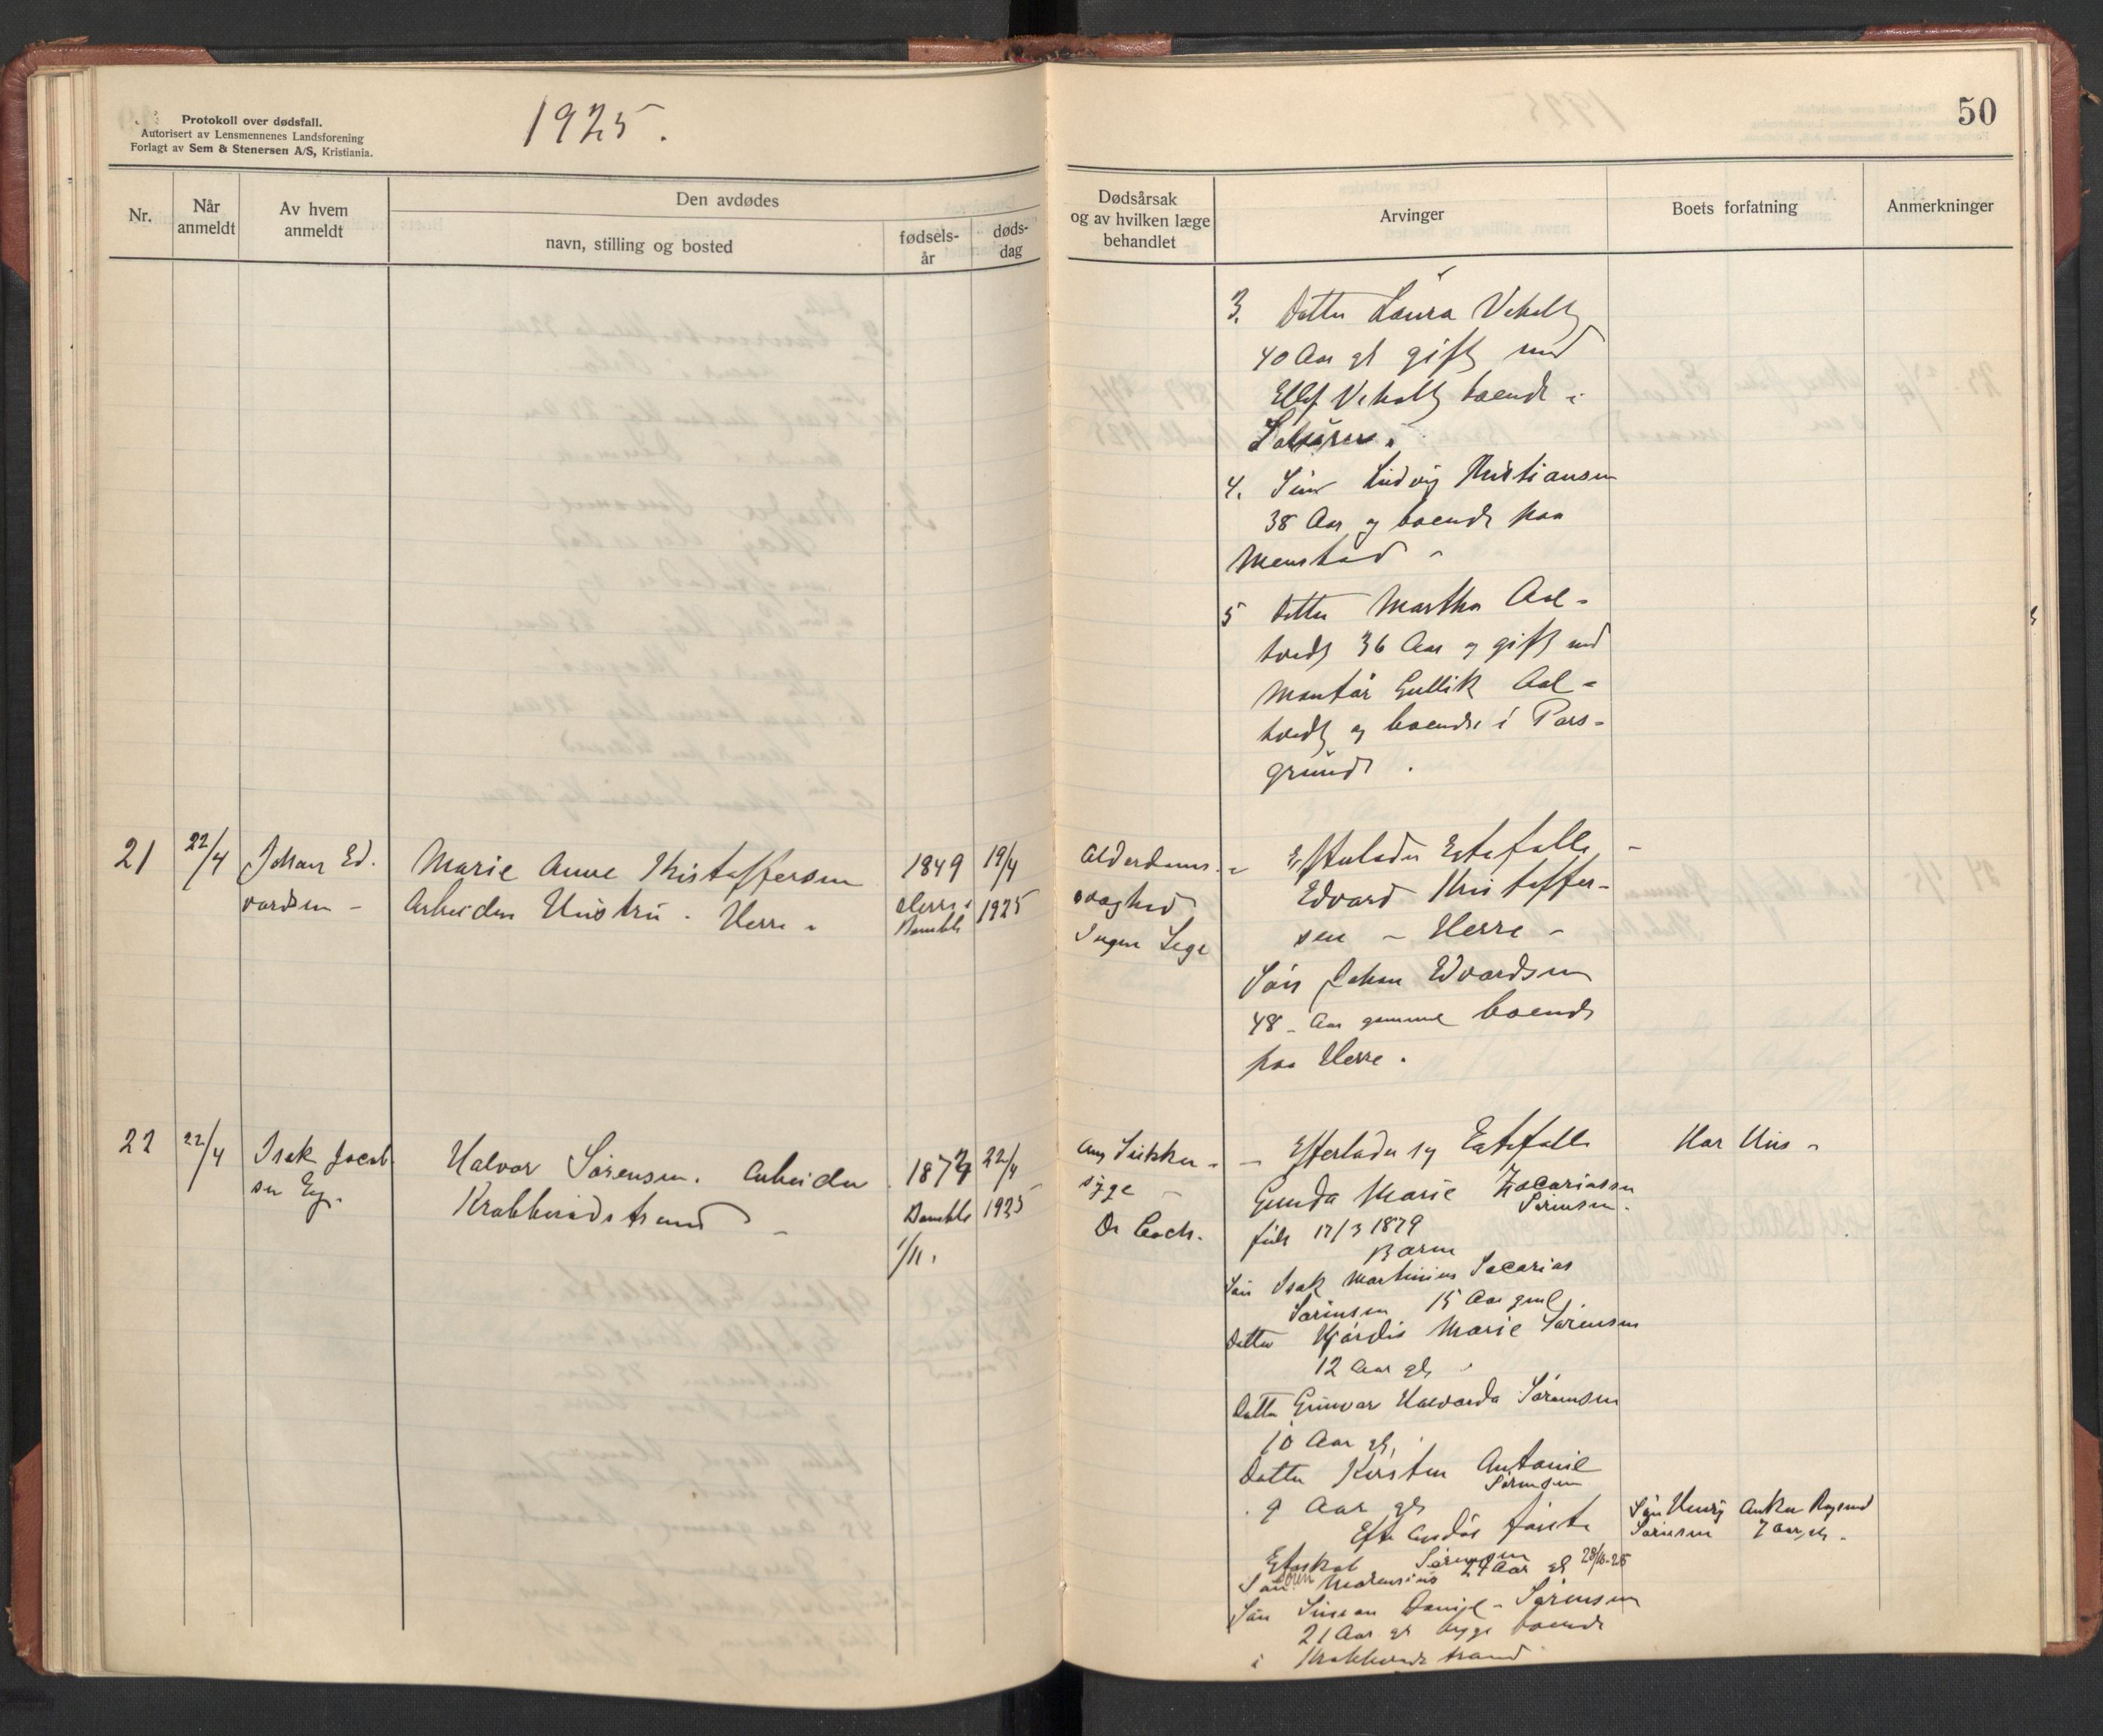 Protokoll over dødsfall.
Autorisert av Lensmennenes Landsforening
Forlagt av Sem & Stenersen A/S, Kristiania.
1925.
Nr.
Når
anmeldt
Av hvem
anmeldt
Den avdødes
navn, stilling og bosted
fødsels-
år
døds-
dag
21
22/4
Johan Ed.
vardsen -
Marie Anne Kristoffersen
Arbeider Hustru. Herre.
1849
Herre i
Bamble
19/4
1925
22
22/4
Isak Jacob
sen Eg.
Halvor Sørensen. Arbeider
Krabberødstrand -
1874
Bamble
1/11.
22/4
1925
50
Dødsårsak
og av hvilken læge
behandlet
Arvinger
Boets forfatning
Anmerkninger
3. Datter Laura
40 Aar gl gift med
boende i
4. Søn Ludvig Kristiansen
38 Aar og boende paa
Menstad -
5 Datter Martha Aal-
tvedt 36 Aar og gift med
Montør Gullik Aal-
tvedt og boende i Pors-
grund.
Alderdoms-
svaghed
Ingen Lege
Efterlader Ektefelle -
Edvard Kristoffer-
sen - Herre -
Søn Johan Edvardsen
48 - Aar gammel boende
paa Herre.
Sukker-
syge -
Dr Coch.
- Efterlader sig Ektefelle
Gunda Marie Zacariasen
Sørensen.
født 17/3 1879
Barn
Søn Isak Martinius Sacarias
Sørensen 15 Aar gml.
Datter Hjørdis Marie Sørensen
12 Aar gl.
Datter Gunvor Halvarda Sørensen
10 Aar gl.
Datter Kirsten Antonie
Sørensen
9 Aar gl
Efter første
Ektaskab Sørensen
Søn Søren 24 Aar gl
Søn Simon Daniel - Sørensen
21 Aar gl begge boende
i Krabberødstrand
Har Hus -
Søn Henry Anker
Sørensen 7 aar gl.